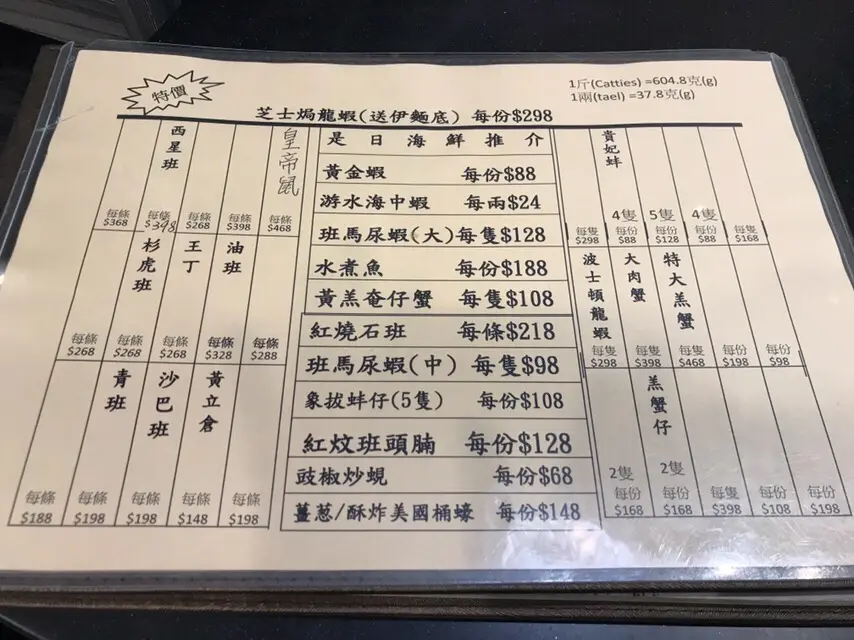 特價
1斤(Catties) =604.8克(g)
1兩(tael) =37.8克(g)
芝士焗龍蝦(送伊麵底) 每份$298
每條
$368
西星班
每條
$398
每條
$268
每條
$398
皇帝鼠
每條
$468
每條
$268
杉虎班
每條
$268
王丁
每條
$268
油班
每條
$328
每條
$288
每條
$188
青班
每條
$198
沙巴班
每條
$198
黃立倉
每條
$148
每條
$198
是日海鮮推介
黃金蝦 每份$88
游水海中蝦 每兩$24
班馬尿蝦(大)每隻$128
水煮魚 每份$188
黃羔奄仔蟹 每隻$108
紅燒石班 每條$218
班馬尿蝦(中) 每隻$98
象拔蚌仔(5隻) 每份$108
紅炆班頭腩 每份$128
豉椒炒蜆 每份$68
薑葱/酥炸美國桶蠔 每份$148
每隻
$298
貴妃蚌
4隻
每份
$88
5隻
每份
$128
4隻
每份
$88
每隻
$168
波士頓龍蝦
每隻
$298
大肉蟹
每隻
$398
特大羔蟹
每隻
$468
每份
$198
每份
$98
2隻
每份
$168
羔蟹仔
2隻
每份
$168
每隻
$398
每份
$108
每份
$198